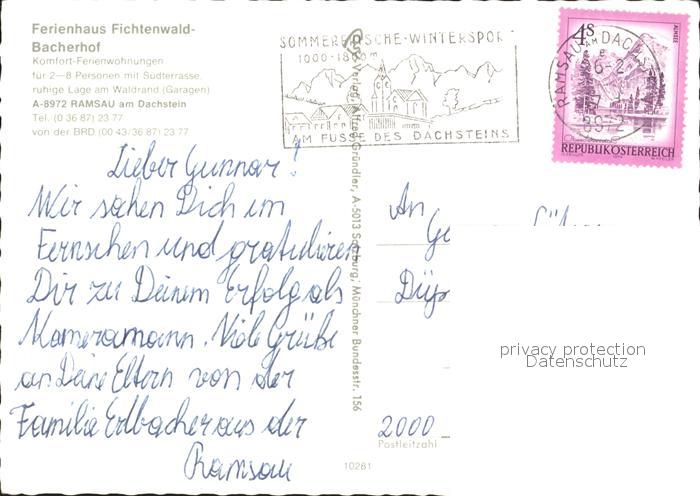 Ferienhaus Fichtenwald-
Bacherhof
Komfort-Ferienwohnungen
für 2—8 Personen mit Südterrasse,
ruhige Lage am Waldrand (Garagen)
A-8972 RAMSAU am Dachstein
Tel. (0 36 87) 23 77
von der BRD (00 43/36 87) 23 77
SOMMERFRISCHE-WINTERSPORT
1000-1800m
AM FUSSE DES DACHSTEINS
4S
ALMSEE
RAMSAU AM DACHST
8972
REPUBLIK ÖSTERREICH
Lieber Gunnar!
Wir sahen Dich im
Fernsehen und gratulieren
Dir zu Deinem Erfolg als
Kameramann. Viele Grüße
an Deine Eltern von der
Familie Erlbacher aus der
Ramsau
Verlag, Alfred Gründler, A-5013 Salzburg, Münchner Bundesstr. 156
An
Düp
2000
Postleitzahl
10281
privacy protection
Datenschutz